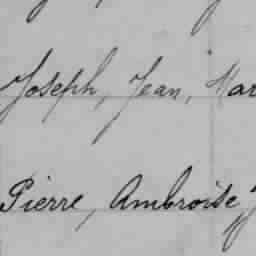 Joseph, Jean, Mar
Pierre, Ambroise